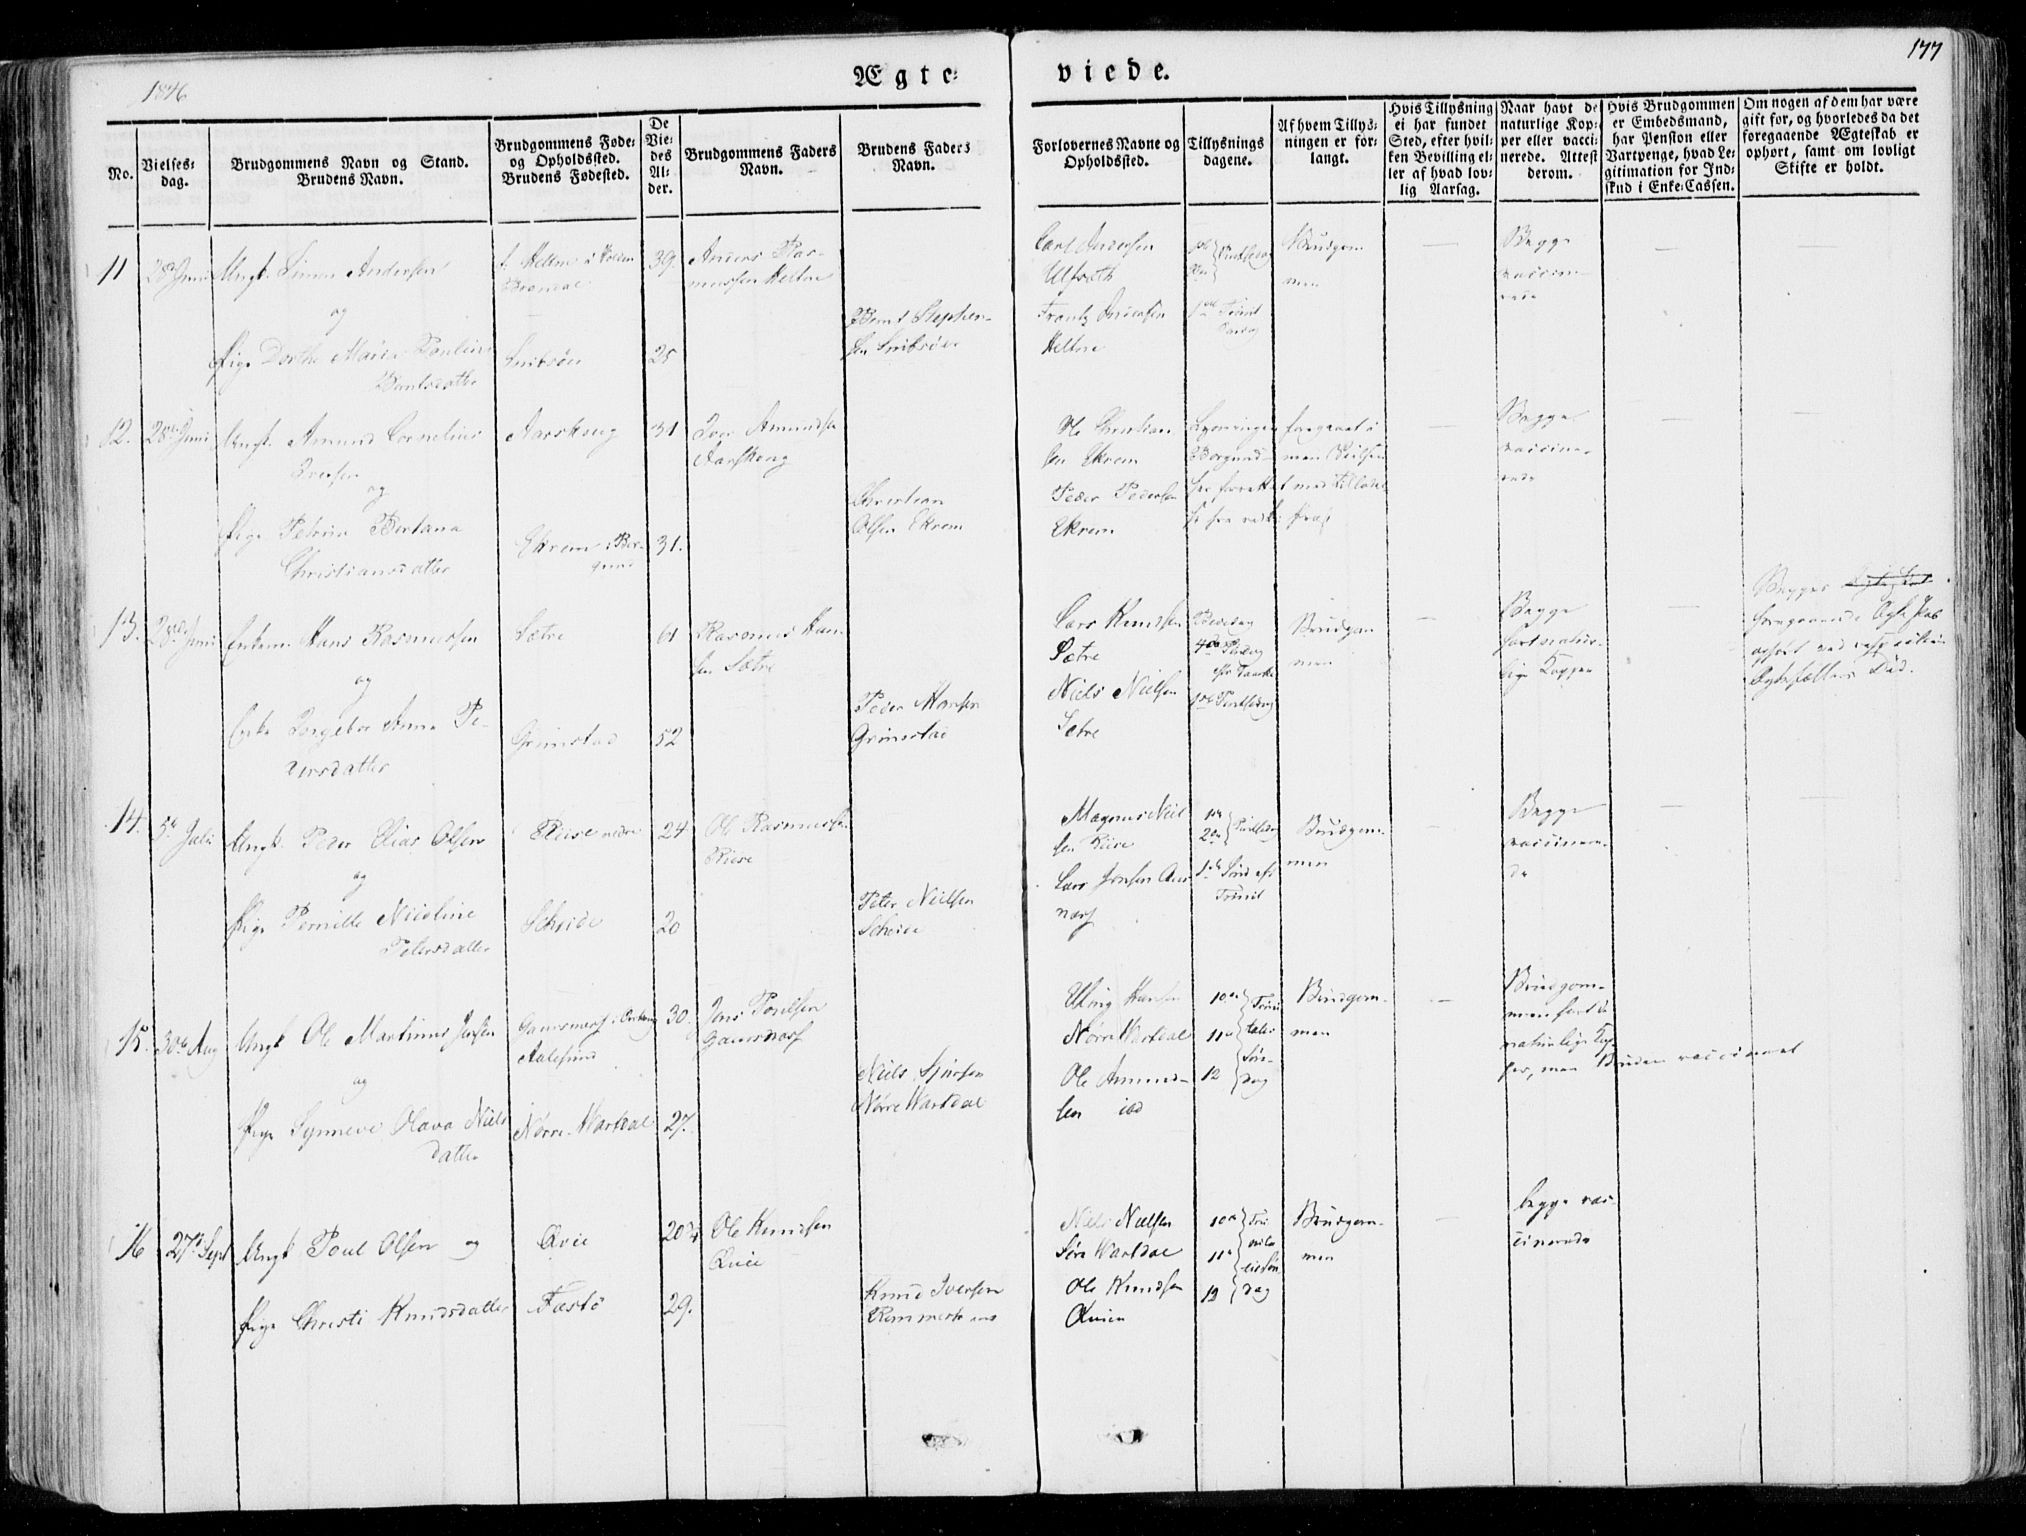 1846
Ægte-
viede.
177
No.
Vielses-
dag.
Brudgommens Navn og Stand.
Brudens Navn.
Brudgommens Føde-
og Opholdssted.
Brudens Fødested.
De
Vie-
des
Al-
der.
Brudgommens Faders
Navn.
Brudens Faders
Navn.
Forlovernes Navne og
Opholdssted.
Tillysnings
dagene.
Af hvem Tillys-
ningen er for-
langt.
Hvis Tillysning
ei har fundet
Sted, efter hvil-
ken Bevilling el-
ler af hvad lov-
lig Aarsag.
Naar havt de
naturlige Kop-
per eller vacci-
nerede. Attest
derom.
Hvis Brudgommen
er Embedsmand,
har Pension eller
Vartpenge, hvad Le-
gitimation for Ind-
skud i Enke-Cassen.
Om nogen af dem har være
gift før, og hvorledes da det
foregaaende Ægteskab er
ophørt, samt om lovligt
Skifte er holdt.
11
28de Juni
Ungk. Simon Andersen
og
Pige Dorthe Maria Pouline
Berntsdatter
Snibsøer
39.
25
Anders Ras-
mussen Heltne
Bernt Stephen-
sen Snibsøer
Carl Andersen
Ulfsæth
Frantz Andersen
Heltne
Brudgom
men
Begge
vaccine-
rede
12.
28de Juni
Ungk. Amund Cornelius
Iversen
og
Pige Petrine Bertana
Christiansdatter
Aarskoug
Ekrem i Bor-
gund
31
31.
Iver Amundsen
Aarskoug
Christian
Olsen Ekrem
Ole Christian
sen Ekrem
Peder Pedersen
Ekrem
Lysningen foregaaet i
Borgund
Begge
vaccine-
rede
13.
28de Juni
Enkem. Hans Rasmussen
og
Enke Ingebor Anna Pe-
dersdatter
Sætre
Grimstad
61
52
Rasmus Han-
sen Sætre
Peder Hansen
Grimstad
Lars Knudsen
Sætre
Niels Nielsen
Sætre
Brudgom
men
Begge
havt natur-
lige Kopper
Begges
foregaaende Ægteskab
ophørt ved respective
Ægtefællers Død.
14.
5te Juli
Ungk. Peder Elias Olsen
og
Pige Pernille Nicoline
Petersdatter
Riise nedre
Scheide
24
20
Ole Rasmussen
Riise
Peter Nielsen
Scheide
Magnus Niel
sen Riise
Lars Jonsen Aur
næs
1ste
2den
Pintsedag
1ste Sønd. eft.
Trinit
Brudgom-
men
Begge
vaccinere-
de
15.
30te Aug
Ungk Ole Martinus Jensen
og
Pige Synneve Olava Niels
datter
Aalesund
Nørre Vartdal
30.
27.
Jens Poulsen
Niels Sjursen
Nørre Vartdal
Elling Hansen
Nørre Vartdal
Ole Amund-
sen ibd
10de
11te
12
Trini
tatis
Søn-
dag
Brudgom-
men
Brudgom-
men havt de
naturlige Kop-
per, men Bruden vaccineret
16
27de Sept
Ungk Poul Olsen og
Pige Christi Knudsdatter
Qvie
Fæstø
20¾
29.
Ole Knudsen
Qvie
Knud Iversen
Niels Nielsen
Søre Vartdal
Ole Knudsen
Qvien
10de
11te
12
dag
Brudgom-
men
begge vac-
cinerede